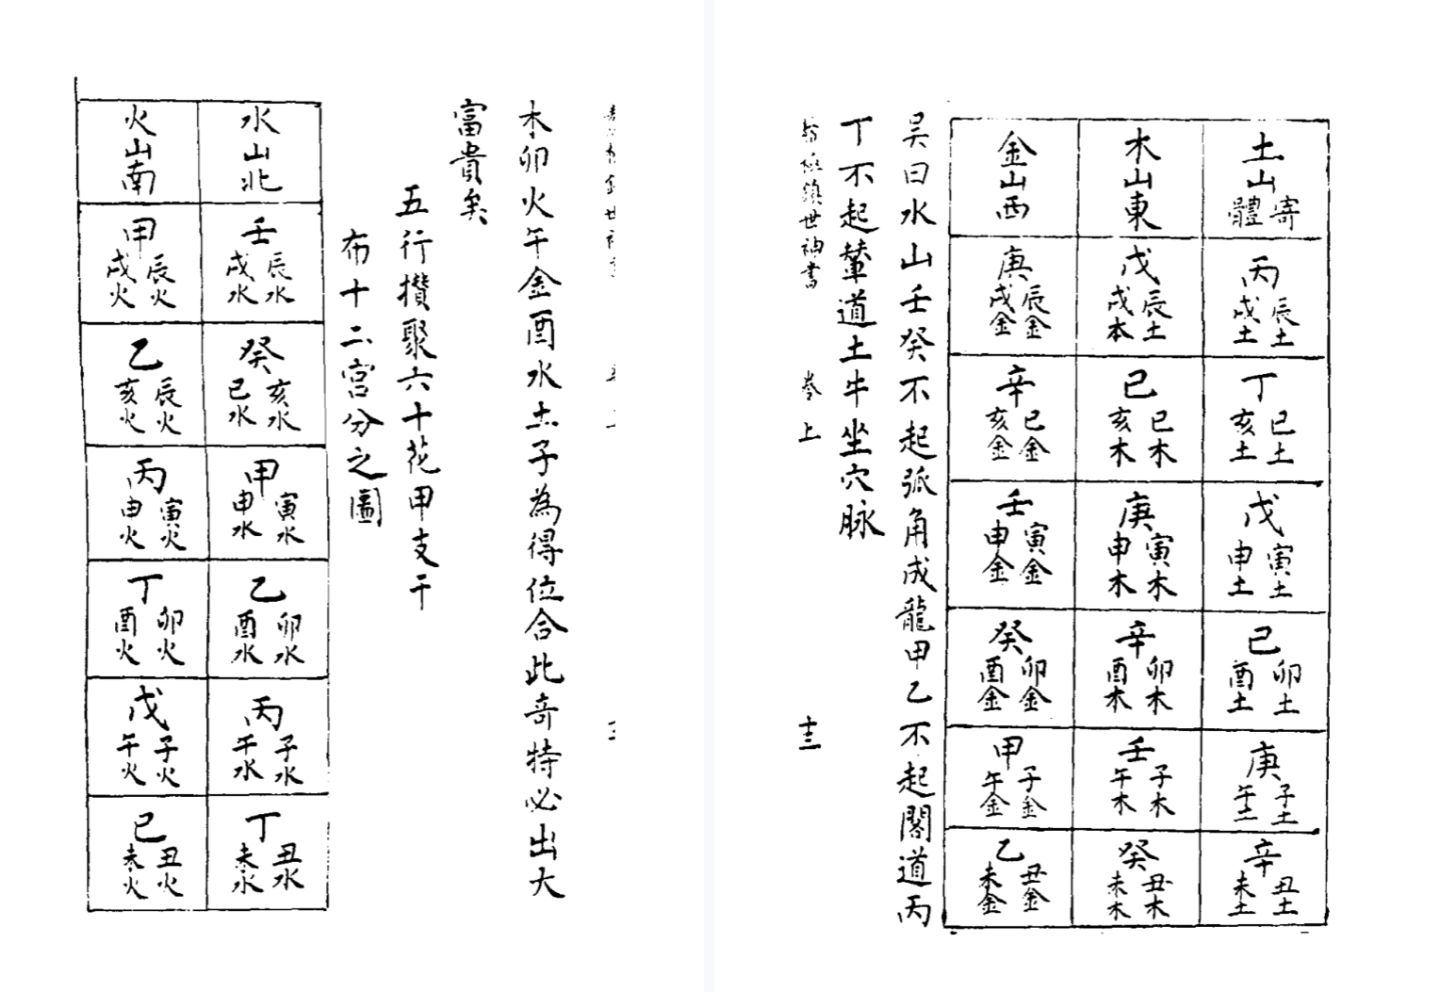 木卯火午金酉水土子為得位合此奇特必出大
富貴矣
五行攢聚六十花甲支干
布十二宮分之圖
水山北
壬 辰水 戌水
癸 亥水 巳水
甲 寅水 申水
乙 卯水 酉水
丙 子水 午水
丁 丑水 未水
火山南
甲 辰火 戌火
乙 辰火 亥火
丙 寅火 申火
丁 卯火 酉火
戊 子火 午火
己 丑火 未火
土山 寄體
丙 辰土 戌土
丁 巳土 亥土
戊 寅土 申土
己 卯土 酉土
庚 子土 午土
辛 丑土 未土
木山東
戊 辰土 戌本
己 巳木 亥木
庚 寅木 申木
辛 卯木 酉木
壬 子木 午木
癸 丑木 未木
金山西
庚 辰金 戌金
辛 巳金 亥金
壬 寅金 申金
癸 卯金 酉金
甲 子金 午金
乙 丑金 未金
吳曰水山壬癸不起弧角成龍甲乙不起閣道丙
丁不起輦道土牛坐穴脉
鎮世神書 卷上 十三